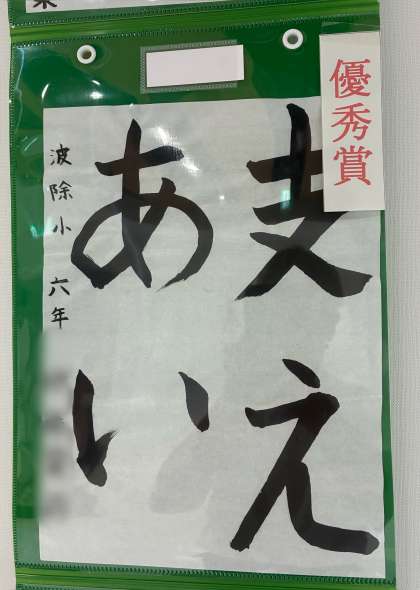 優秀賞
支え
あい
波除小 六年